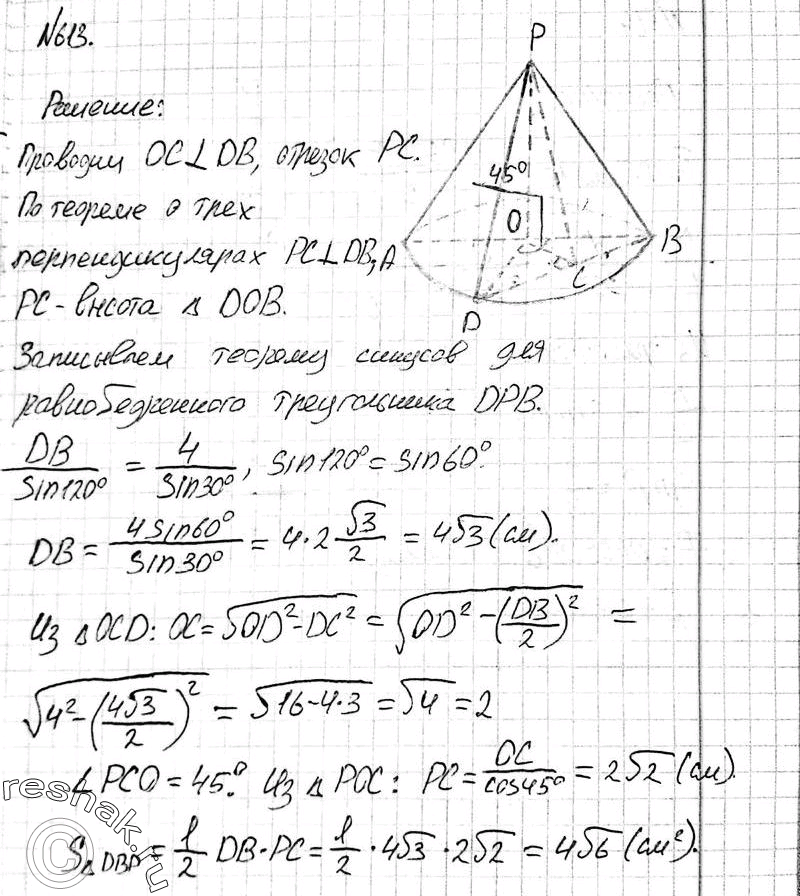 №613.
Решение:
Проводим OC⊥DB, отрезок PC.
По теореме о трех
перпендикулярах PC⊥DB,
PC - высота Δ DOB.
Записываем теорему синусов для
равнобедренного треугольника DPB.
DB/sin120° = 4/sin30°, sin120°=sin60°.
DB = 4sin60°/sin30° = 4·2 √3/2 = 4√3 (см).
Из ΔOCD: OC = √(OD²-DC²) = √(OD²-(DB/2)²) =
√(4²-(4√3/2)²) = √(16-4·3) = √4 = 2
∠PCO = 45°. Из Δ POC: PC = OC/cos45° = 2√2 (см).
S ΔDBP = 1/2 DB·PC = 1/2 · 4√3 · 2√2 = 4√6 (см²).
P
45°
O
A
B
C
D
©reshak.ru